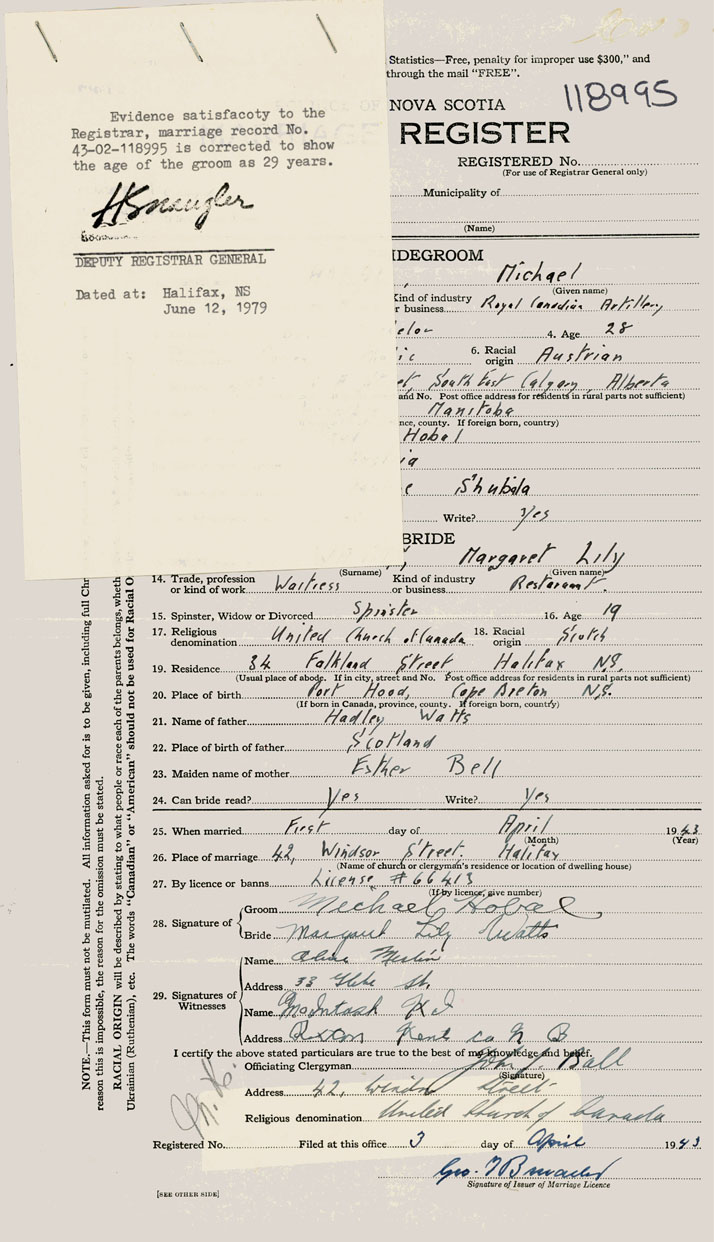 Evidence satisfacoty to the
Registrar, marriage record No.
43-02-118995 is corrected to show
the age of the groom as 29 years.
DEPUTY REGISTRAR GENERAL
Dated at: Halifax, NS
June 12, 1979
Statistics—Free, penalty for improper use $300," and
through the mail "FREE".
NOVA SCOTIA 118995
REGISTER
REGISTERED No.
(For use of Registrar General only)
Municipality of
(Name)
IDEGROOM
Michael
(Given name)
Kind of industry
r business Royal Canadian Artillery
elor 4. Age 28
ic 6. Racial origin Austrian
et, South East Calgary, Alberta
and No. Post office address for residents in rural parts not sufficient)
Manitoba
nce, county. If foreign born, country)
Hobal
ia
e Shubala
Write? Yes
BRIDE
Margaret Lily
(Surname) (Given name)
14. Trade, profession or kind of work Waitress Kind of industry or business Restaurant.
15. Spinster, Widow or Divorced Spinster 16. Age 19
17. Religious denomination United Church of Canada 18. Racial origin Scotch
19. Residence 34 Falkland Street Halifax N.S.
(Usual place of abode. If in city, street and No. Post office address for residents in rural parts not sufficient)
20. Place of birth Port Hood, Cape Breton N.S.
(If born in Canada, province, county. If foreign born, country)
21. Name of father Hadley Watts
22. Place of birth of father Scotland
23. Maiden name of mother Esther Bell
24. Can bride read? Yes Write? Yes
25. When married First day of April 1943
(Month) (Year)
26. Place of marriage 42, Windsor Street, Halifax
(Name of church or clergyman's residence or location of dwelling house)
27. By licence or banns License # 66413
(If by licence, give number)
28. Signature of Groom Michael Hobal
Bride Margaret Lily Watts
29. Signatures of Witnesses
Name
Address 33 St.
Name McIntosh
Address Kent co N B
I certify the above stated particulars are true to the best of my knowledge and belief.
Officiating Clergyman John J. Ball
(Signature)
Address 42, Windsor Street
Religious denomination United Church of Canada
Registered No. Filed at this office 3 day of April 1943
Geo.
Signature of Issuer of Marriage Licence
[SEE OTHER SIDE]
NOTE.—This form must not be mutilated. All information asked for is to be given, including full Chr
reason this is impossible, the reason for the omission must be stated.
RACIAL ORIGIN will be described by stating to what people or race each of the parents belongs, wheth
Ukrainian (Ruthenian), etc. The words "Canadian" or "American" should not be used for Racial O